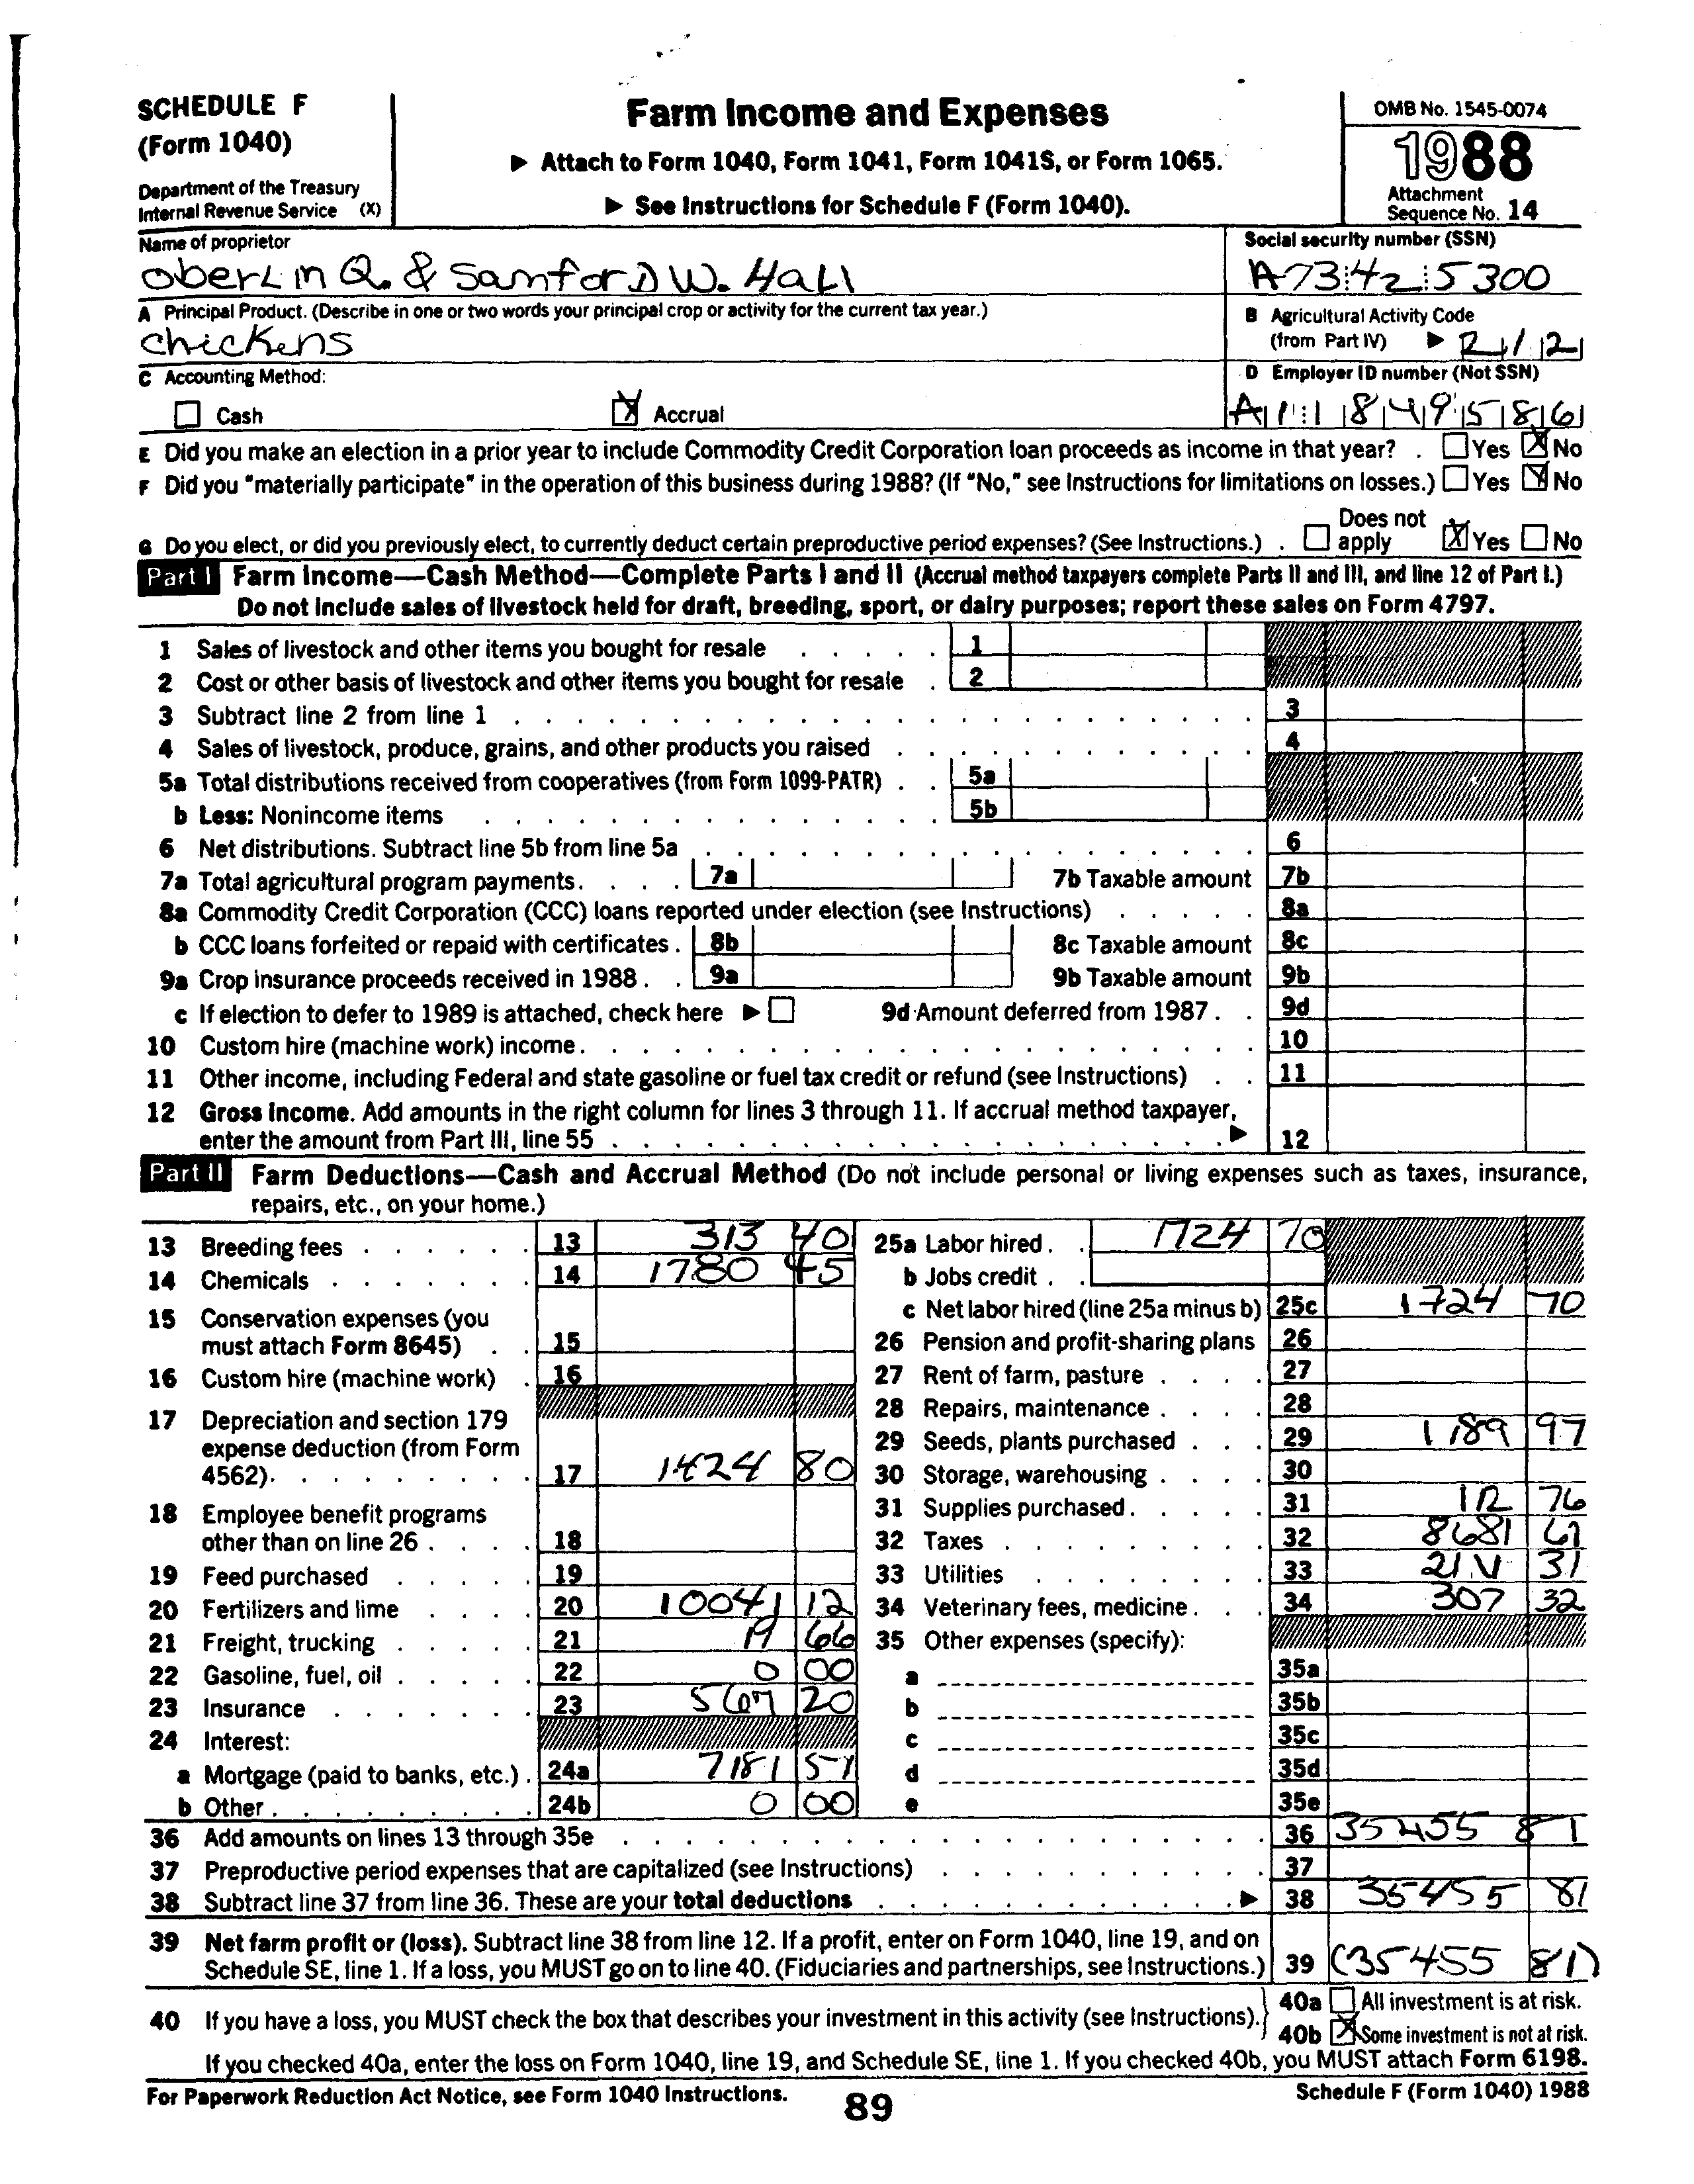 SCHEDULE F
(Form 1040)
Department of the Treasury
Internal Revenue Service (X)
Farm Income and Expenses
▶ Attach to Form 1040, Form 1041, Form 1041S, or Form 1065.
▶ See Instructions for Schedule F (Form 1040).
OMB No. 1545-0074
1988
Attachment
Sequence No. 14
Name of proprietor
OberLin Q. & SamforD W. HaLl
Social security number (SSN)
A73:42:5300
A Principal Product. (Describe in one or two words your principal crop or activity for the current tax year.)
Chickens
B Agricultural Activity Code
(from Part IV) ▶ 2 1 2
C Accounting Method:
Cash
X Accrual
D Employer ID number (Not SSN)
A 1 1 8 4 9 5 8 6
E Did you make an election in a prior year to include Commodity Credit Corporation loan proceeds as income in that year? . Yes X No
F Did you "materially participate" in the operation of this business during 1988? (If "No," see Instructions for limitations on losses.) Yes X No
G Do you elect, or did you previously elect, to currently deduct certain preproductive period expenses? (See Instructions.) . Does not apply X Yes No
Part I Farm Income—Cash Method—Complete Parts I and II (Accrual method taxpayers complete Parts II and III, and line 12 of Part I.)
Do not include sales of livestock held for draft, breeding, sport, or dairy purposes; report these sales on Form 4797.
1 Sales of livestock and other items you bought for resale 1
2 Cost or other basis of livestock and other items you bought for resale 2
3 Subtract line 2 from line 1 3
4 Sales of livestock, produce, grains, and other products you raised 4
5a Total distributions received from cooperatives (from Form 1099-PATR) 5a
b Less: Nonincome items 5b
6 Net distributions. Subtract line 5b from line 5a 6
7a Total agricultural program payments. 7a 7b Taxable amount 7b
8a Commodity Credit Corporation (CCC) loans reported under election (see Instructions) 8a
b CCC loans forfeited or repaid with certificates . 8b 8c Taxable amount 8c
9a Crop insurance proceeds received in 1988 . 9a 9b Taxable amount 9b
c If election to defer to 1989 is attached, check here ▶ 9d Amount deferred from 1987 . 9d
10 Custom hire (machine work) income. 10
11 Other income, including Federal and state gasoline or fuel tax credit or refund (see Instructions) 11
12 Gross income. Add amounts in the right column for lines 3 through 11. If accrual method taxpayer,
enter the amount from Part III, line 55 ▶ 12
Part II Farm Deductions—Cash and Accrual Method (Do not include personal or living expenses such as taxes, insurance,
repairs, etc., on your home.)
13 Breeding fees 13 313 40
14 Chemicals 14 1780 45
15 Conservation expenses (you
must attach Form 8645) 15
16 Custom hire (machine work) 16
17 Depreciation and section 179
expense deduction (from Form
4562). 17 1424 80
18 Employee benefit programs
other than on line 26 . 18
19 Feed purchased 19
20 Fertilizers and lime 20 10041 12
21 Freight, trucking 21 19 66
22 Gasoline, fuel, oil 22 0 00
23 Insurance 23 567 20
24 Interest:
a Mortgage (paid to banks, etc.) . 24a 7181 51
b Other . 24b 0 00
25a Labor hired . 1724 70
b Jobs credit .
c Net labor hired (line 25a minus b) 25c 1724 70
26 Pension and profit-sharing plans 26
27 Rent of farm, pasture 27
28 Repairs, maintenance 28
29 Seeds, plants purchased 29 1189 97
30 Storage, warehousing 30
31 Supplies purchased. 31 76
32 Taxes 32 8681 61
33 Utilities 33 31
34 Veterinary fees, medicine. 34 307 32
35 Other expenses (specify):
a 35a
b 35b
c 35c
d 35d
e 35e
36 Add amounts on lines 13 through 35e 36 35455 81
37 Preproductive period expenses that are capitalized (see Instructions) 37
38 Subtract line 37 from line 36. These are your total deductions ▶ 38 35455 81
39 Net farm profit or (loss). Subtract line 38 from line 12. If a profit, enter on Form 1040, line 19, and on
Schedule SE, line 1. If a loss, you MUST go on to line 40. (Fiduciaries and partnerships, see Instructions.) 39 (35455 81)
40 If you have a loss, you MUST check the box that describes your investment in this activity (see Instructions).
40a All investment is at risk.
40b X Some investment is not at risk.
If you checked 40a, enter the loss on Form 1040, line 19, and Schedule SE, line 1. If you checked 40b, you MUST attach Form 6198.
For Paperwork Reduction Act Notice, see Form 1040 Instructions.
89
Schedule F (Form 1040) 1988